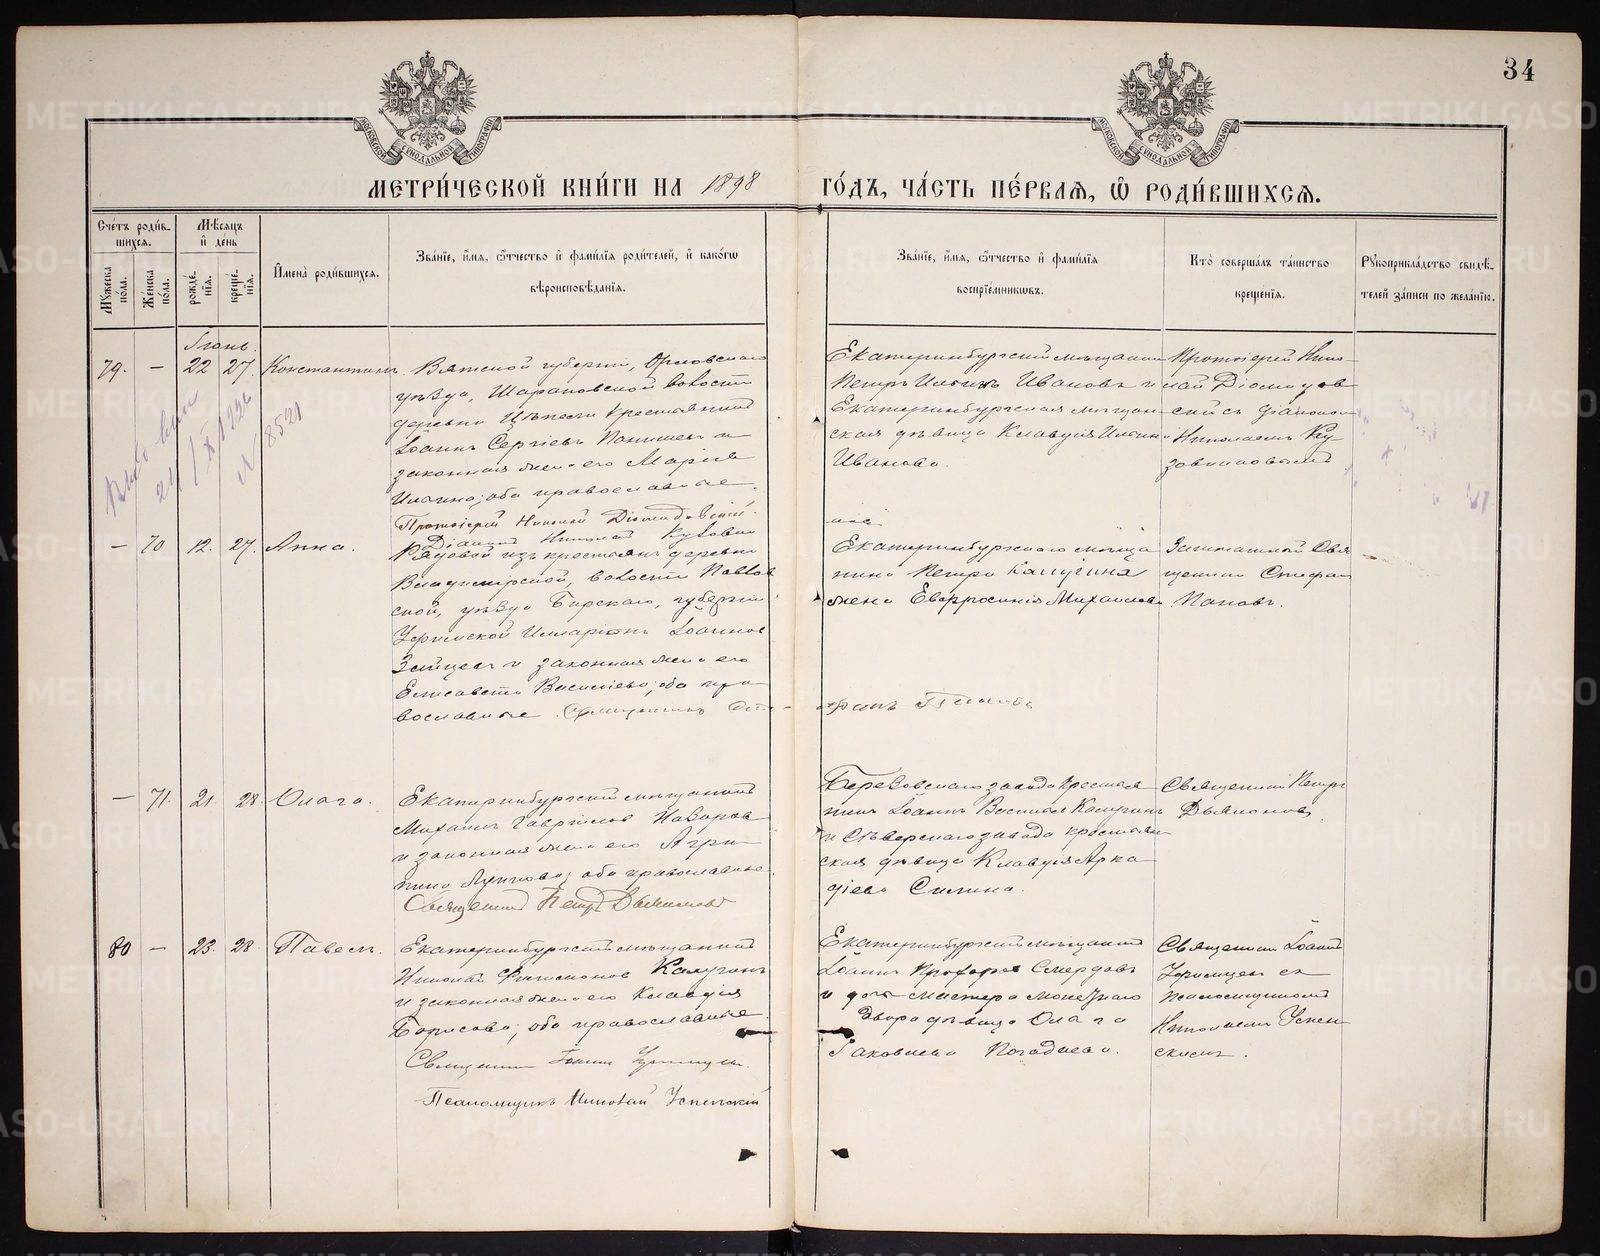 34
МОСКОВСКОЙ СѴНОДАЛЬНОЙ ТИПОГРАФІИ
МОСКОВСКОЙ СѴНОДАЛЬНОЙ ТИПОГРАФІИ
МЕТРИ́ЧЕСКОЙ КНИ́ГИ НА 1898 ГО́ДЪ, ЧА́СТЬ ПЕ́РВАѦ, Ѿ РОДИ́ВШИХСѦ.
Сче́тъ роди́в-
шихсѧ.
Мѣ́сѧцъ
и҆ де́нь
Мꙋ́жеска по́ла.
Же́нска по́ла.
рожде́-нїѧ.
креще́-нїѧ.
И҆мена̀ роди́вшихсѧ.
Зва́нїе, и҆́мѧ, ѻ҆́тчество и҆ фами́лїѧ роди́телей, и҆ како́гѡ
вѣроисповѣ́данїѧ.
Зва́нїе, и҆́мѧ, ѻ҆́тчество и҆ фами́лїѧ
воспрїе́мникѡвъ.
Кто̀ соверша́лъ та́инство
креще́нїѧ.
Рꙋкоприкла́дство свидѣ́-
телей за́писи по жела́нїю.
Іюнь.
79. — 22 27. Константинъ
Вятской губерніи, Орловскаго
уѣзда, Шарановской волости
деревни крестьянинъ
Іоаннъ Сергіевъ и
законная жена его Марія
Ильина; оба православные.
Протоіерей Николай Діомидовскій.
Діаконъ Николай
Екатеринбургскій мѣщанинъ
Петръ Ильинъ Ивановъ и
Екатеринбургская мѣщан-
ская дѣвица Клавдія Ильина
Иванова.
Протоіерей Нико-
лай Діомидов
скій съ діакономъ
Николаемъ Ку
зовниковымъ
24/X 1926
№ 8521
— 70 12. 27. Анна.
Рядовой изъ крестьянъ деревни
Владимірской, волости Павлов
ской, уѣзда Бирскаго, губерніи
Уфимской Илларіонъ Іоанновъ
Зайцевъ и законная жена его
Елисавета Васильева; оба пра-
вославные. Священникъ Сте-
фанъ Поповъ
Екатеринбургскаго мѣща
нина Петра Калугина
жена Евфросинія Михайлова
Заштатный Свя
щенникъ Стефан
Поповъ.
— 71. 21. 28. Ольга.
Екатеринбургскій мѣщанинъ
Михаилъ Гавріиловъ Назаровъ
и законная жена его Агри-
пина; оба православные.
Священникъ Петръ Дьяконовъ
Березовскаго завода крестья
нинъ Іоаннъ Васильевъ Калугинъ
и Сѣверскаго завода крестьян
ская дѣвица Клавдія Арка
діева Силина.
Священникъ Петръ
Дьяконовъ.
80 — 23. 28. Павелъ.
Екатеринбургскій мѣщанинъ
Николай Филимоновъ Калугинъ
и законная жена его Клавдія
Борисова; оба православные.
Священникъ Іоаннъ
Псаломщикъ Николай Успенскій
Екатеринбургскій мѣщанинъ
Іоаннъ Прохоровъ Смердовъ
и дочь мастера монетнаго
двора дѣвица Ольга
Яковлева Погадаева.
Священникъ Іоаннъ
съ
псаломщикомъ
Николаемъ Успен
скимъ.